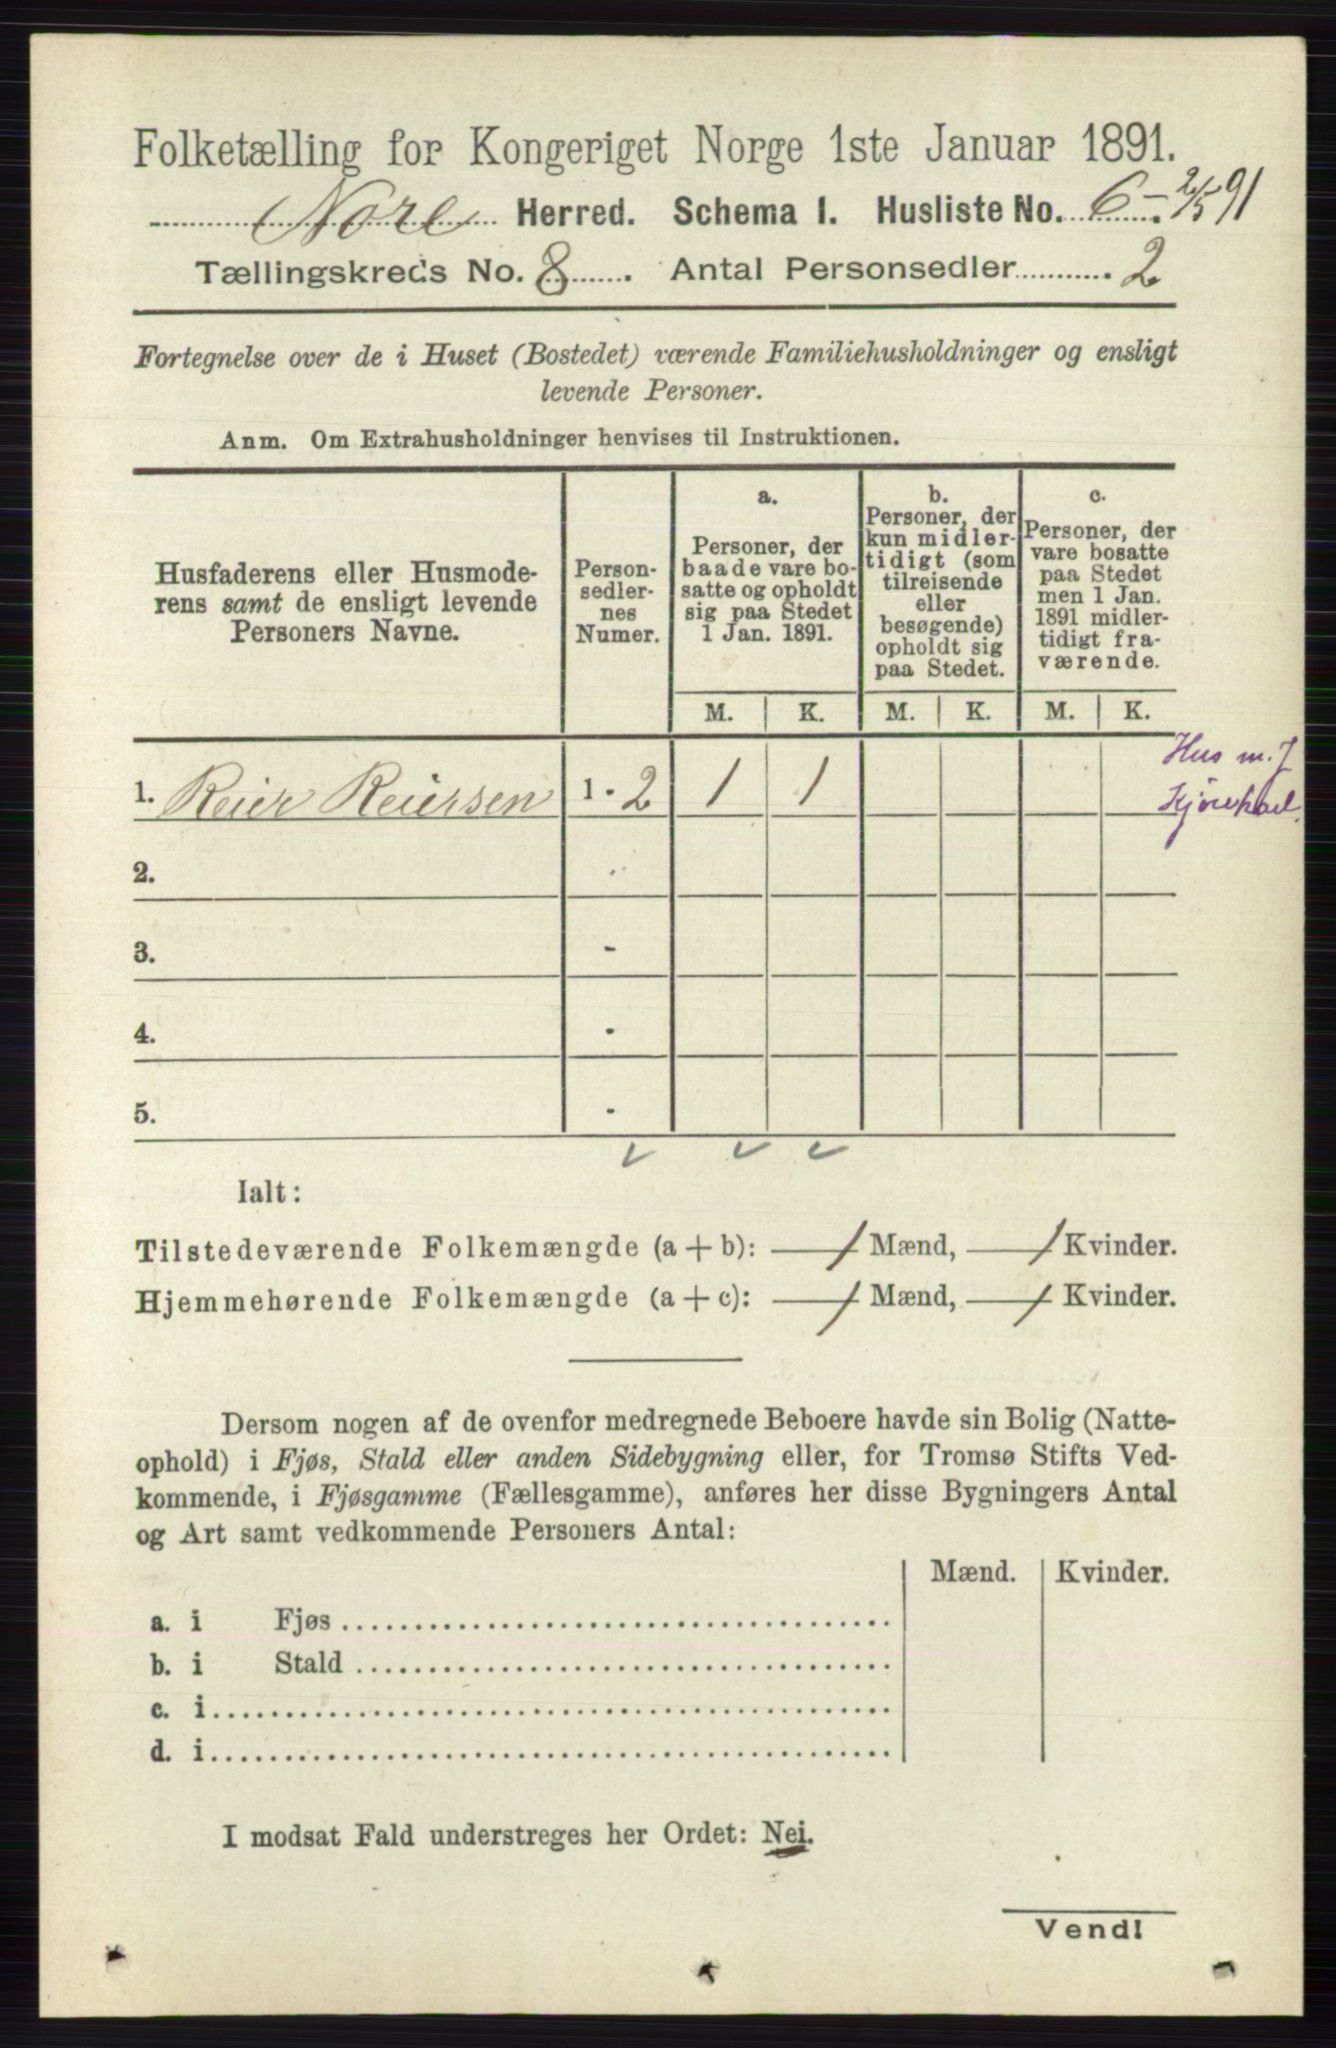 Folketælling for Kongeriget Norge 1ste Januar 1891.
Nore Herred. Schema 1. Husliste No. 6 - 2/5 91
Tællingskreds No. 8. Antal Personsedler 2
Fortegnelse over de i Huset (Bostedet) værende Familiehusholdninger og ensligt
levende Personer.
Anm. Om Extrahusholdninger henvises til Instruktionen.
Husfaderens eller Husmode-
rens samt de ensligt levende
Personers Navne.
Person-
sedler-
nes
Numer.
a.
Personer, der
baade vare bo-
satte og opholdt
sig paa Stedet
1 Jan. 1891.
b.
Personer, der
kun midler-
tidigt (som
tilreisende
eller
besøgende)
opholdt sig
paa Stedet.
c.
Personer, der
vare bosatte
paa Stedet
men 1 Jan.
1891 midler-
tidigt fra-
værende.
M. K. M. K. M. K.
1. Reier Reiersen 1 - 2 1 1
Hus m. J
2.
3. -
4. -
5. -
Ialt:
Tilstedeværende Folkemængde (a + b): 1 Mænd, 1 Kvinder.
Hjemmehørende Folkemængde (a + c): 1 Mænd, 1 Kvinder.
Dersom nogen af de ovenfor medregnede Beboere havde sin Bolig (Natte-
ophold) i Fjøs, Stald eller anden Sidebygning eller, for Tromsø Stifts Ved-
kommende, i Fjøsgamme (Fællesgamme), anføres her disse Bygningers Antal
og Art samt vedkommende Personers Antal:
Mænd. Kvinder.
a. i Fjøs
b. i Stald
c. i
d. i
I modsat Fald understreges her Ordet: Nei.
Vend!